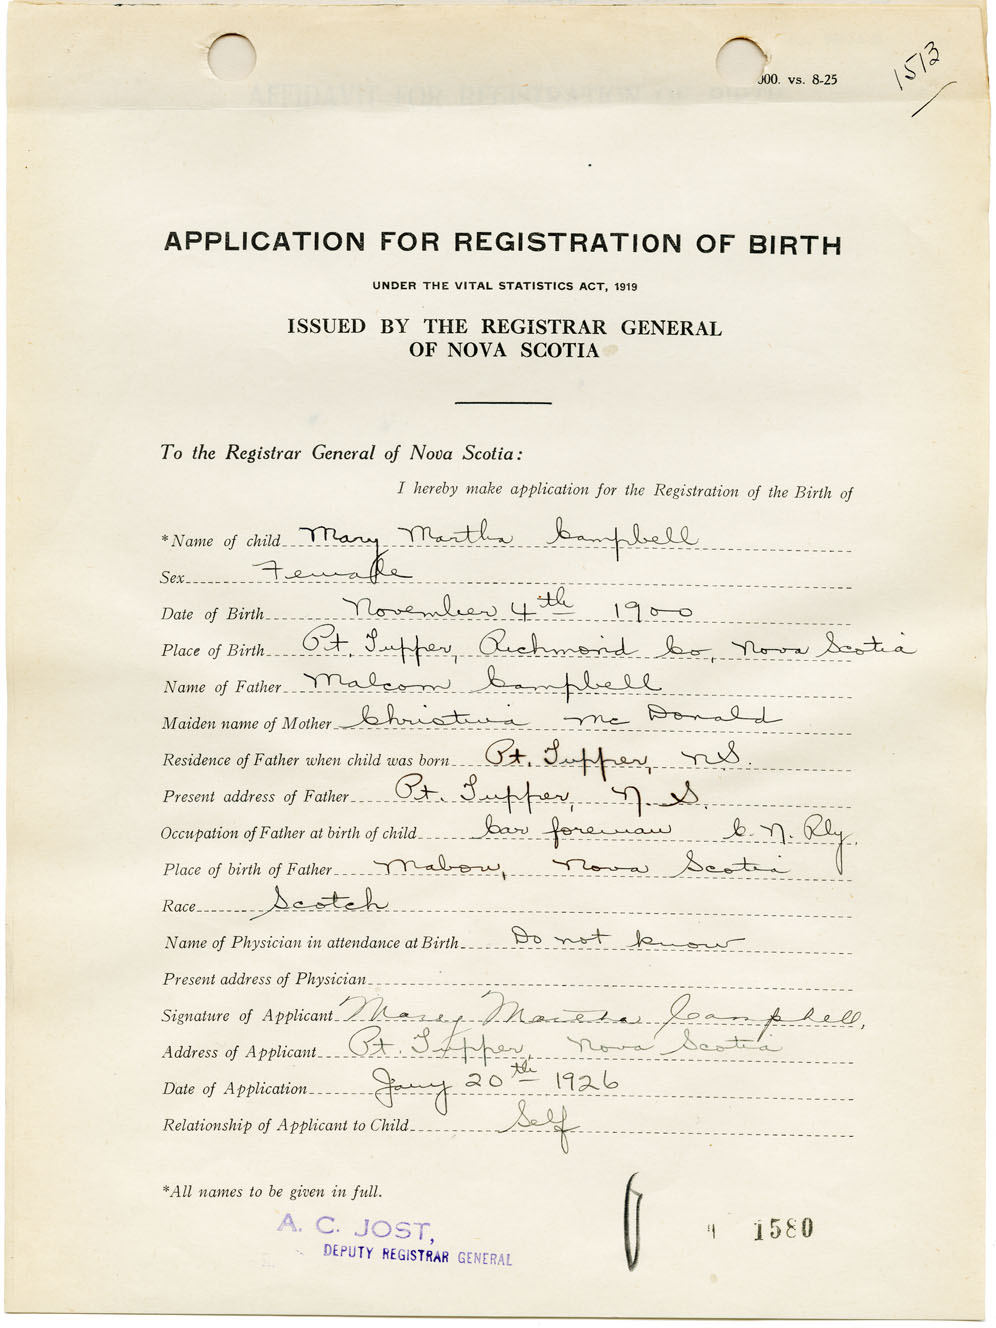 000. vs. 8-25
1513
APPLICATION FOR REGISTRATION OF BIRTH
UNDER THE VITAL STATISTICS ACT, 1919
ISSUED BY THE REGISTRAR GENERAL
OF NOVA SCOTIA
To the Registrar General of Nova Scotia:
I hereby make application for the Registration of the Birth of
*Name of child Mary Martha Campbell
Sex Female
Date of Birth November 4th 1900
Place of Birth Pt. Tupper, Richmond Co, Nova Scotia
Name of Father Malcom Campbell
Maiden name of Mother Christina Mc Donald
Residence of Father when child was born Pt. Tupper, N.S.
Present address of Father Pt. Tupper, N.S.
Occupation of Father at birth of child Car foreman C.N. Rly.
Place of birth of Father Mabou, Nova Scotia
Race Scotch
Name of Physician in attendance at Birth Do not know
Present address of Physician
Signature of Applicant Mary Martha Campbell,
Address of Applicant Pt. Tupper, Nova Scotia
Date of Application Jany 20th 1926
Relationship of Applicant to Child Self
*All names to be given in full.
A. C. JOST,
DEPUTY REGISTRAR GENERAL
1580